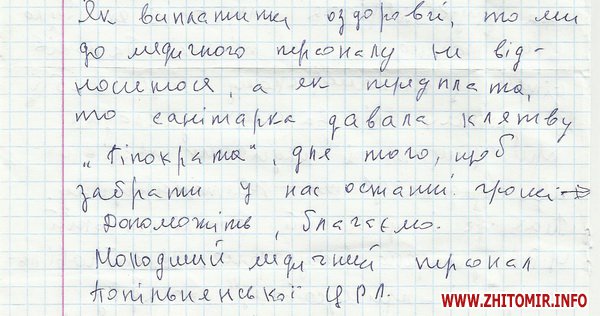 Як виплатити оздоровчі, то ми
до медичного персоналу не від-
носимося, а як передплата,
то санітарка давала клятву
„Гіпократа", для того, щоб
забрати у нас останні гроші
Допоможіть, благаємо.
Молодший медичний персонал
Попільнянської ЦРЛ.
WWW.ZHITOMIR.INFO